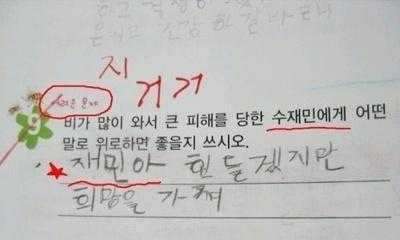 지 거거
9
비가 많이 와서 큰 피해를 당한 수재민에게 어떤
말로 위로하면 좋을지 쓰시오.
재민아 힌들겠지만
희망을 가져